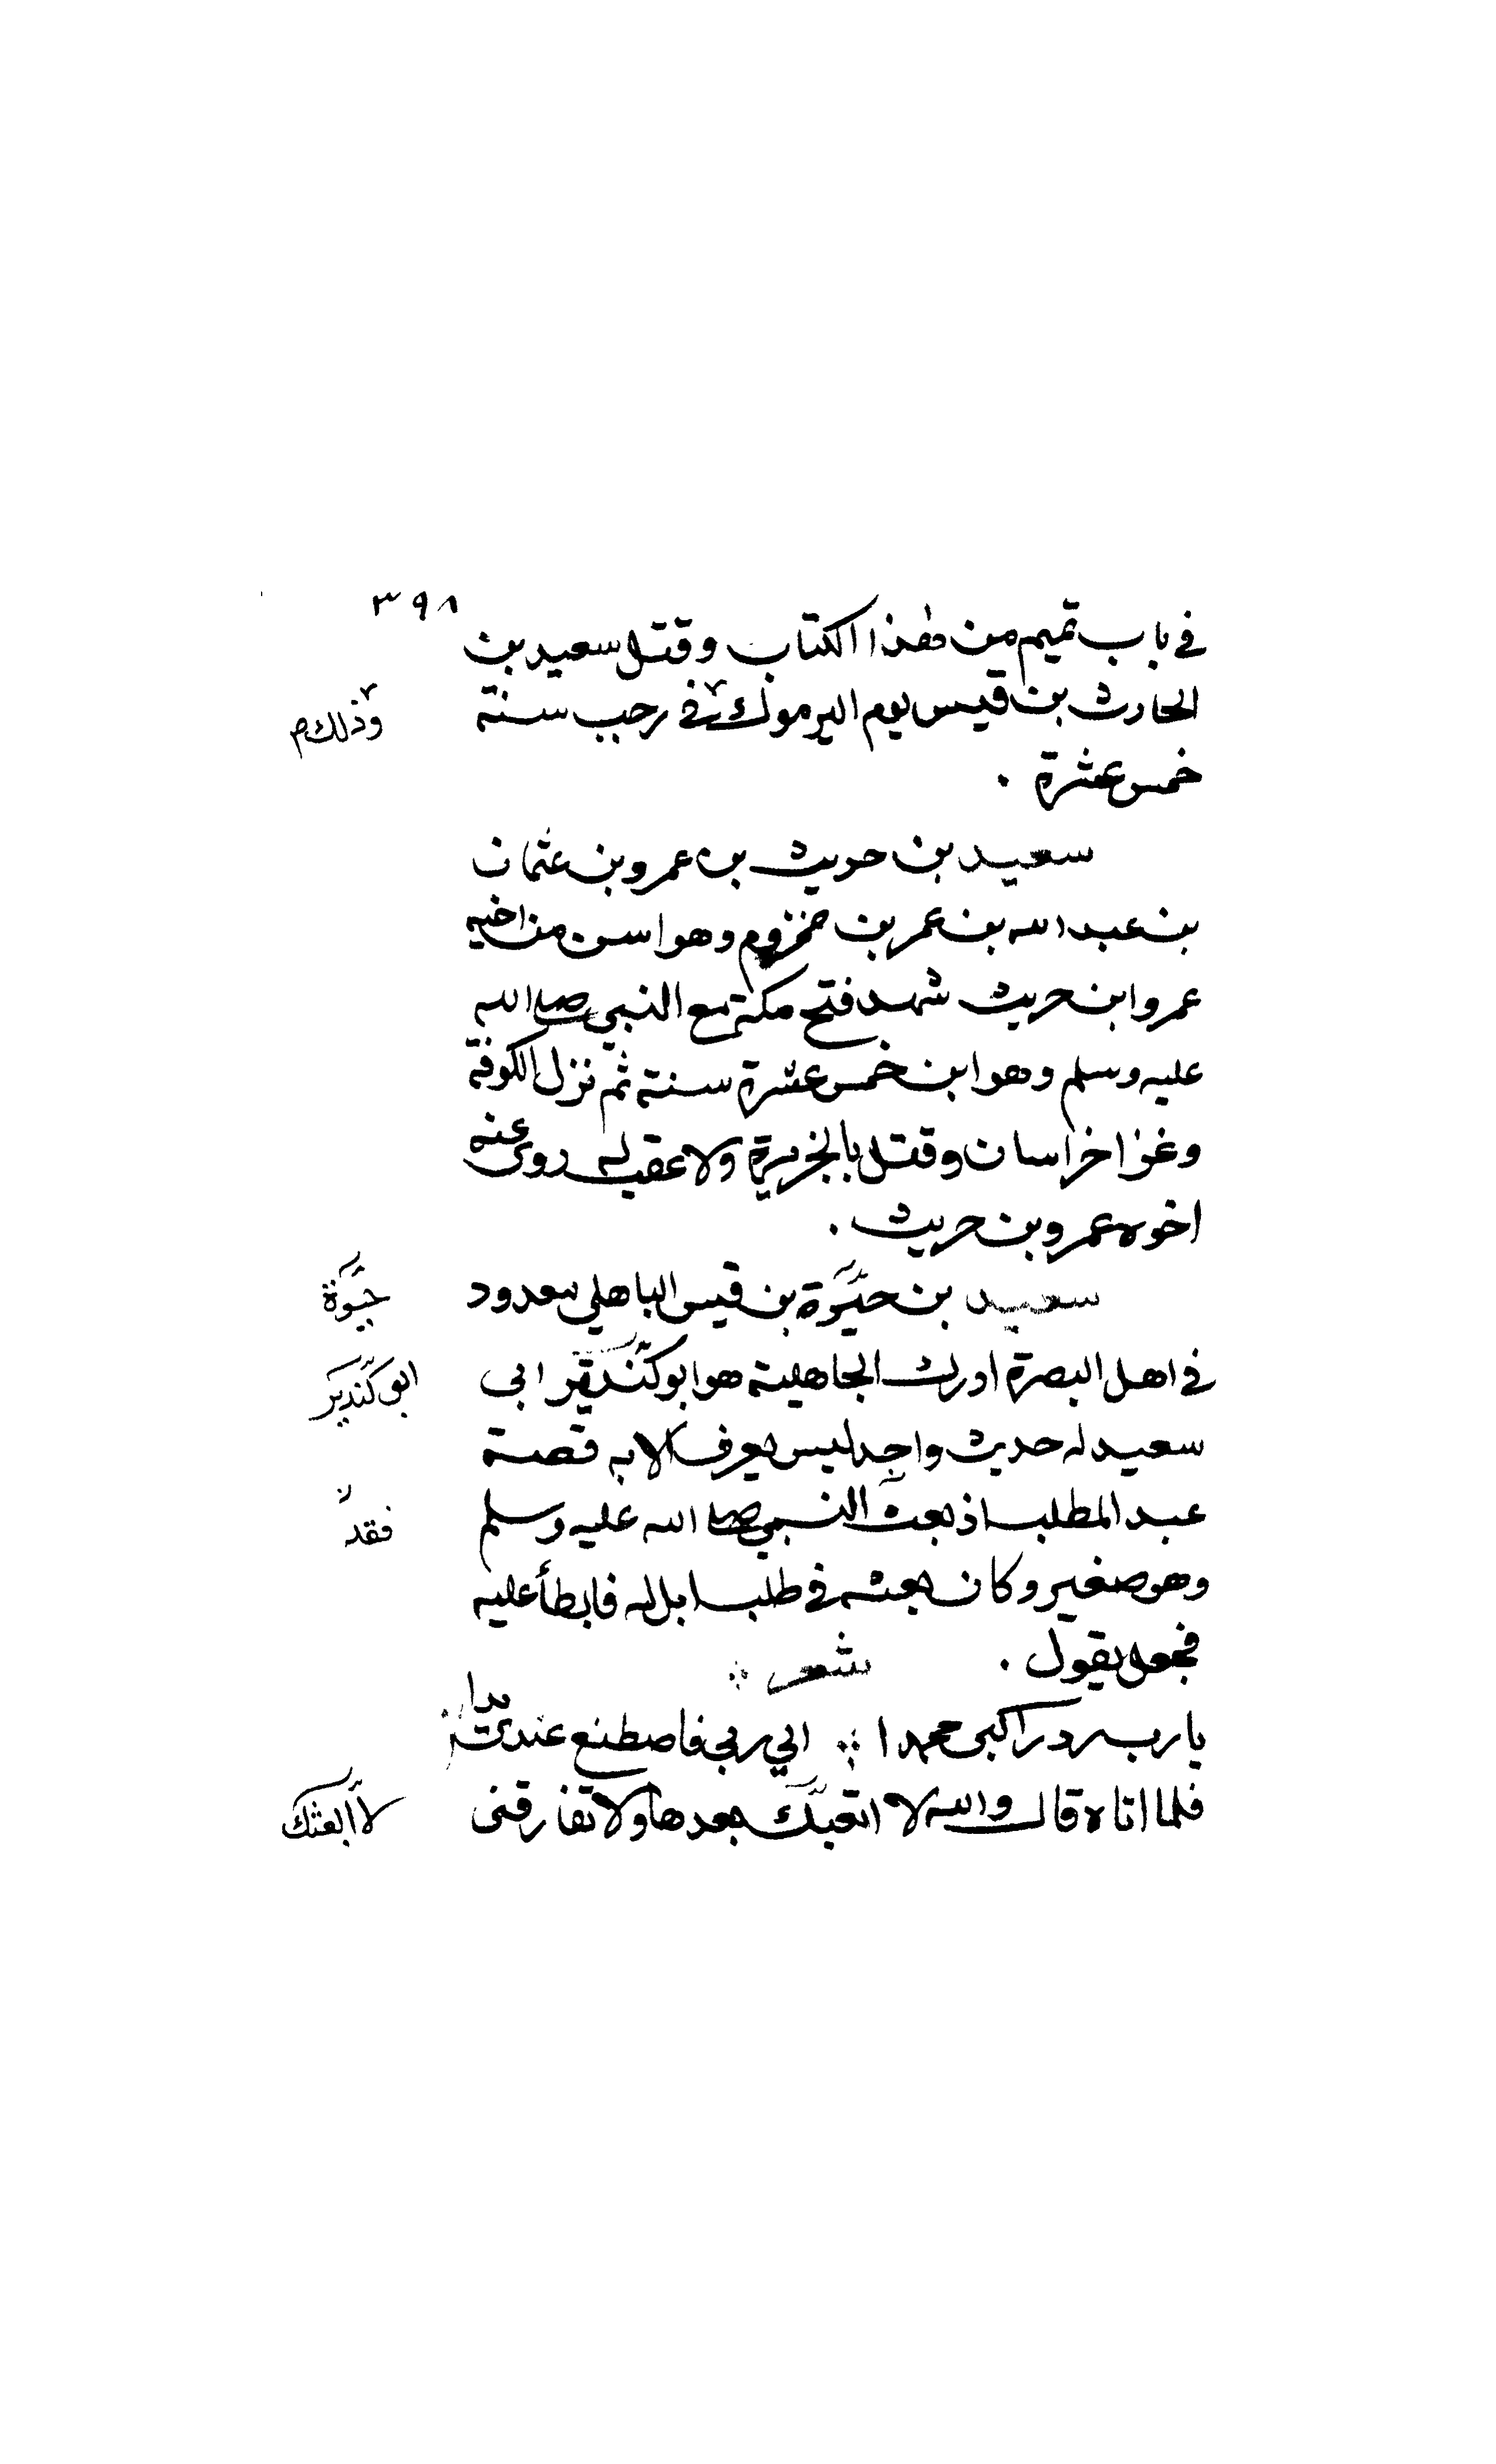 ٣٩٨
في باب تميم من هذا الكتاب وقتل سعيد بن
الحارث بن قيس يوم اليرموك في رجب سنة
وذلك م
خمس عشرة .
سعيد بن حريث بن عمرو بن عثمان
بن عبد الله بن عمر بن مخزوم وهو اسن من اخيه
عمرو ابن حريث شهد فتح مكة مع النبي صلى الله
عليه وسلم وهو ابن خمس عشرة سنة ثم نزل الكوفة
وغزا خراسان وقتل بالجزيرة ولا عقب له روى عنه
اخوه عمرو بن حريث .
سعيد بن حيوة بن قيس الباهلي معدود
حيوة
في اهل البصرة ادرك الجاهلية هو ابو كندير ابي
ابو كندير
سعيد له حديث واحد ليس يعرف الا به قصة
عبد المطلب اذ بعث النبي صلى الله عليه وسلم
فقد
وهو صغير وكان بعثه في طلب ابل له فابطأ عليه
فجعل يقول . شعر
يا رب رد راكبي محمدا الي ربي فاصطنع عندي يدا
فلما اتاه قال والله لا بعدها ولا تفارقني
لا ابعثك